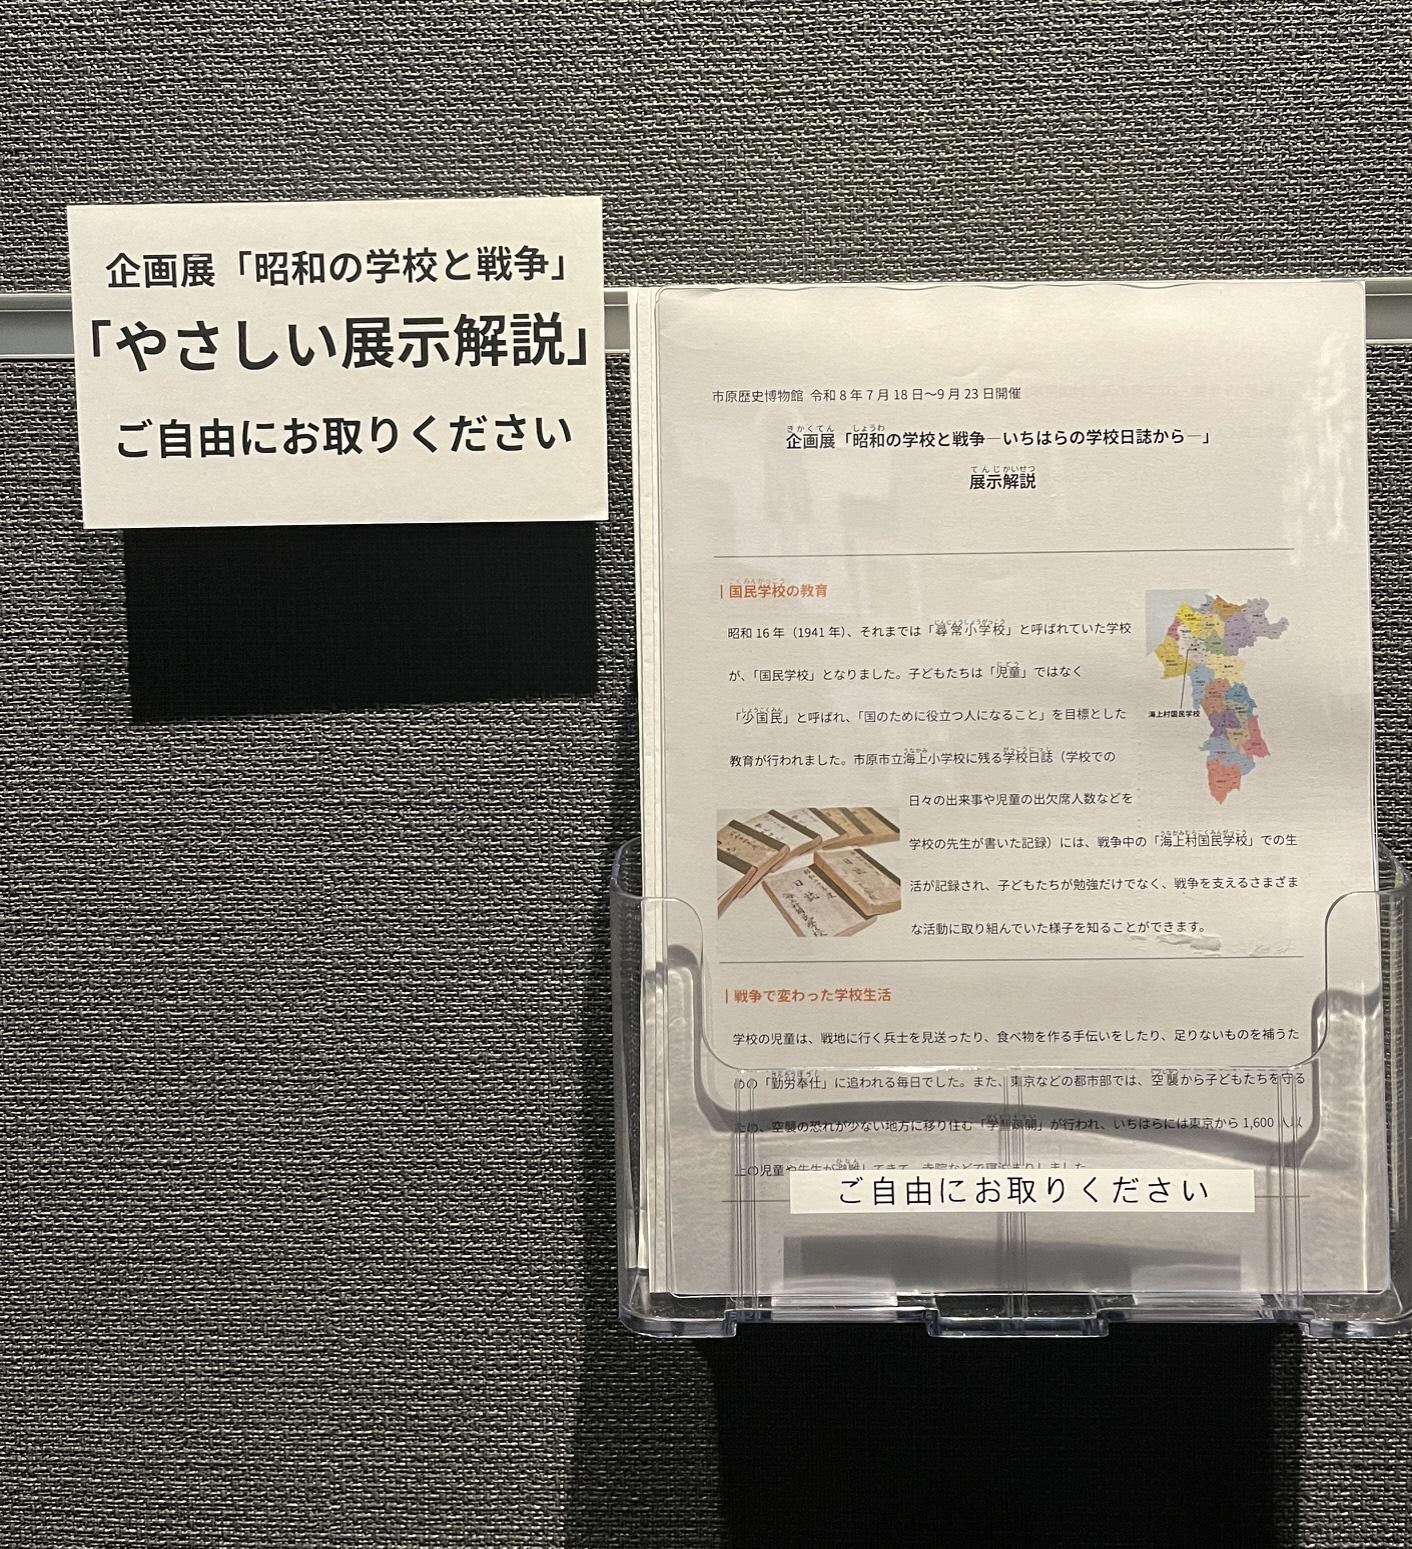 企画展「昭和の学校と戦争」
「やさしい展示解説」
ご自由にお取りください
市原歴史博物館 令和8年7月18日～9月23日開催
企画展「昭和の学校と戦争―いちはらの学校日誌から―」
展示解説
国民学校の教育
昭和16年（1941年）、それまでは「尋常小学校」と呼ばれていた学校
が、「国民学校」となりました。子どもたちは「児童」ではなく
「少国民」と呼ばれ、「国のために役立つ人になること」を目標とした
教育が行われました。市原市立海上小学校に残る学校日誌（学校での
日々の出来事や児童の出欠席人数などを
学校の先生が書いた記録）には、戦争中の「海上村国民学校」での生
活が記録され、子どもたちが勉強だけでなく、戦争を支えるさまざま
な活動に取り組んでいた様子を知ることができます。
海上村国民学校
戦争で変わった学校生活
学校の児童は、戦地に行く兵士を見送ったり、食べ物を作る手伝いをしたり、足りないものを補うた
めの「勤労奉仕」に追われる毎日でした。また、東京などの都市部では、空襲から子どもたちを守る
ため、空襲の恐れが少ない地方に移り住む「学童疎開」が行われ、いちはらには東京から1,600人以
上の児童や先生が避難してきて、寺院などで寝泊まりしました。
ご自由にお取りください